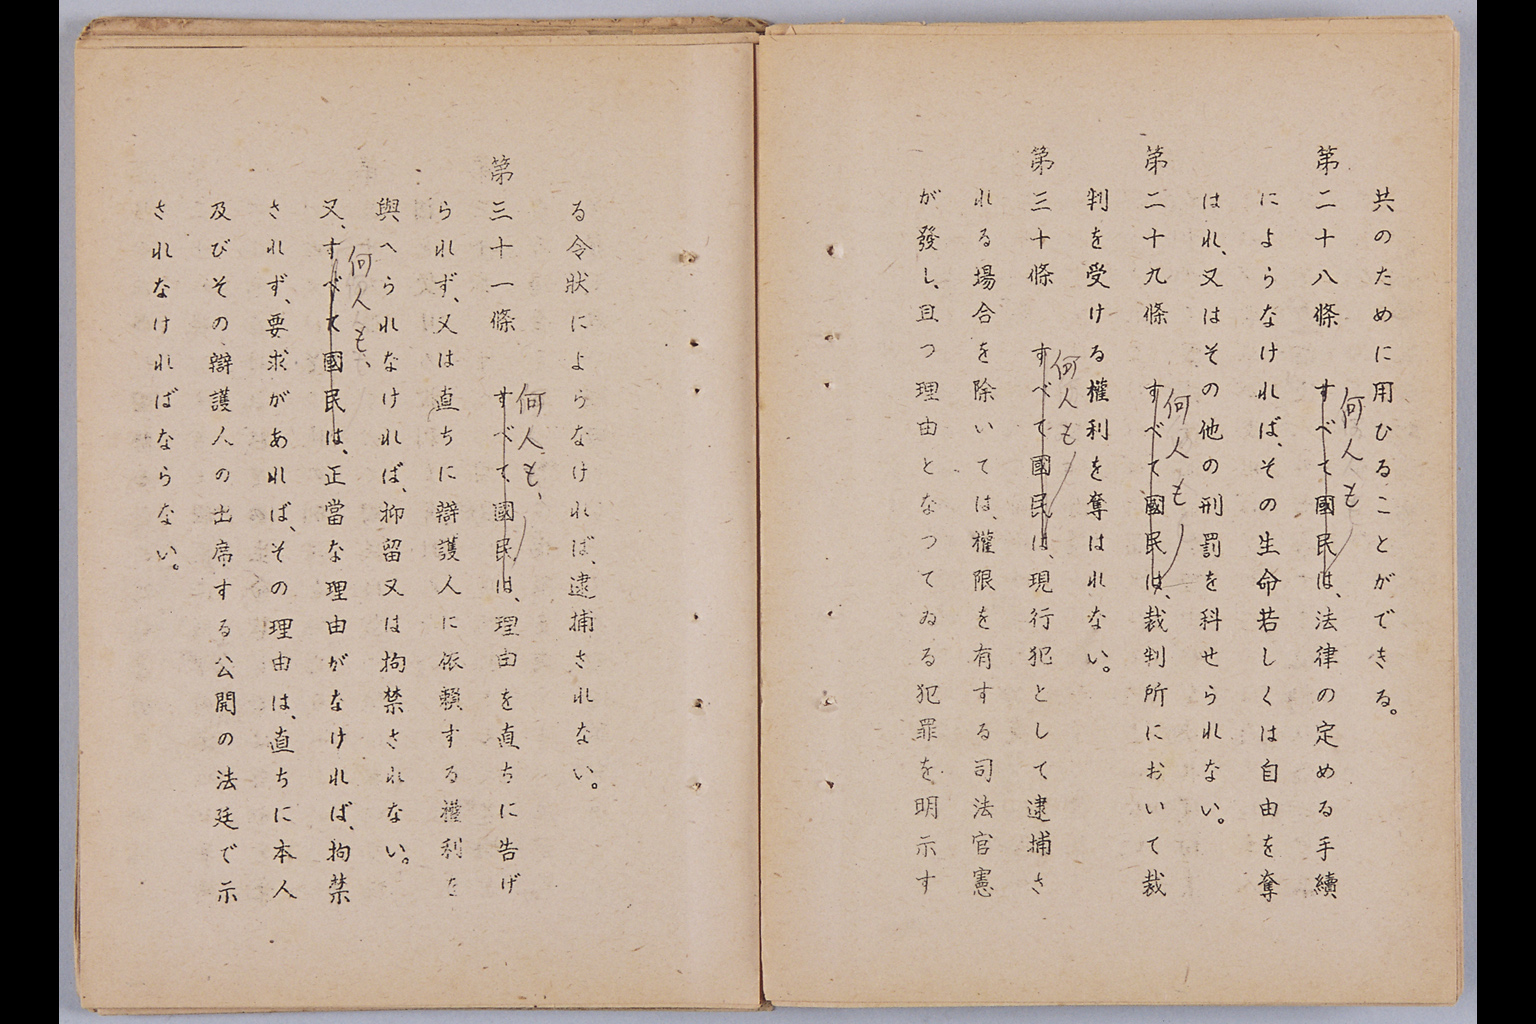 共のために用ひることができる。
第二十八條　すべて國民は、法律の定める手續
何人も
によらなければ、その生命若しくは自由を奪
はれ、又はその他の刑罰を科せられない。
第二十九條　すべて國民は、裁判所において裁
何人も
判を受ける權利を奪はれない。
第三十條　すべて國民は、現行犯として逮捕さ
何人も
れる場合を除いては、權限を有する司法官憲
が發し、且つ理由となつてゐる犯罪を明示す
る令狀によらなければ、逮捕されない。
第三十一條　すべて國民は、理由を直ちに告げ
何人も、
られず、又は直ちに辯護人に依賴する權利を
與へられなければ、抑留又は拘禁されない。
又、すべて國民は、正當な理由がなければ、拘禁
何人も、
されず、要求があれば、その理由は、直ちに本人
及びその辯護人の出席する公開の法廷で示
されなければならない。